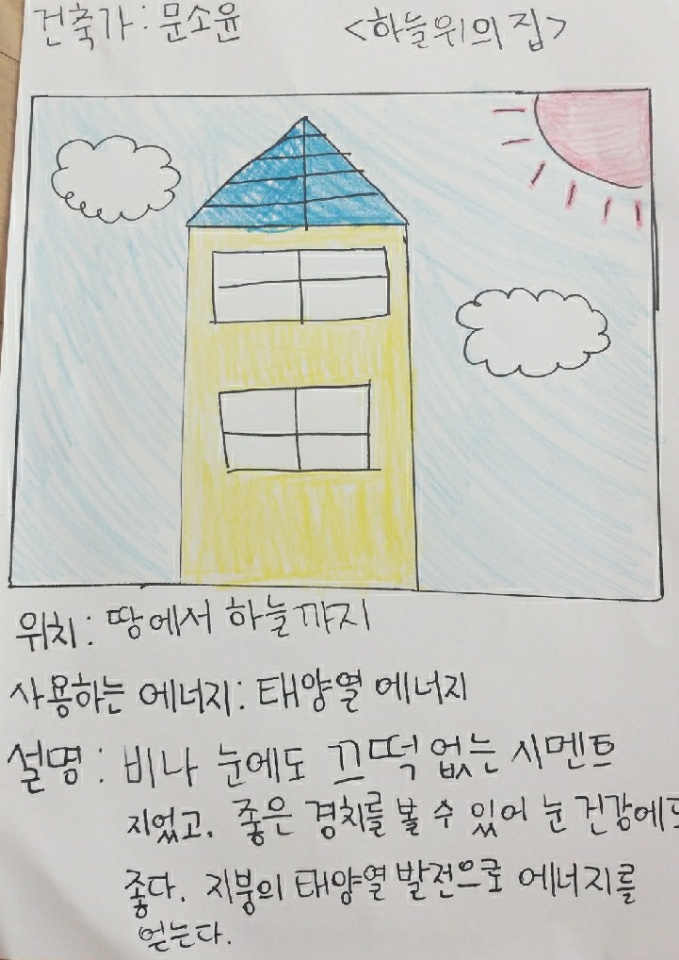 건축가: 문소윤 <하늘위의 집>
위치: 땅에서 하늘까지
사용하는 에너지: 태양열 에너지
설명: 비나 눈에도 끄떡 없는 시멘트
지었고. 좋은 경치를 볼 수 있어 눈 건강에도
좋다. 지붕의 태양열 발전으로 에너지를
얻는다.